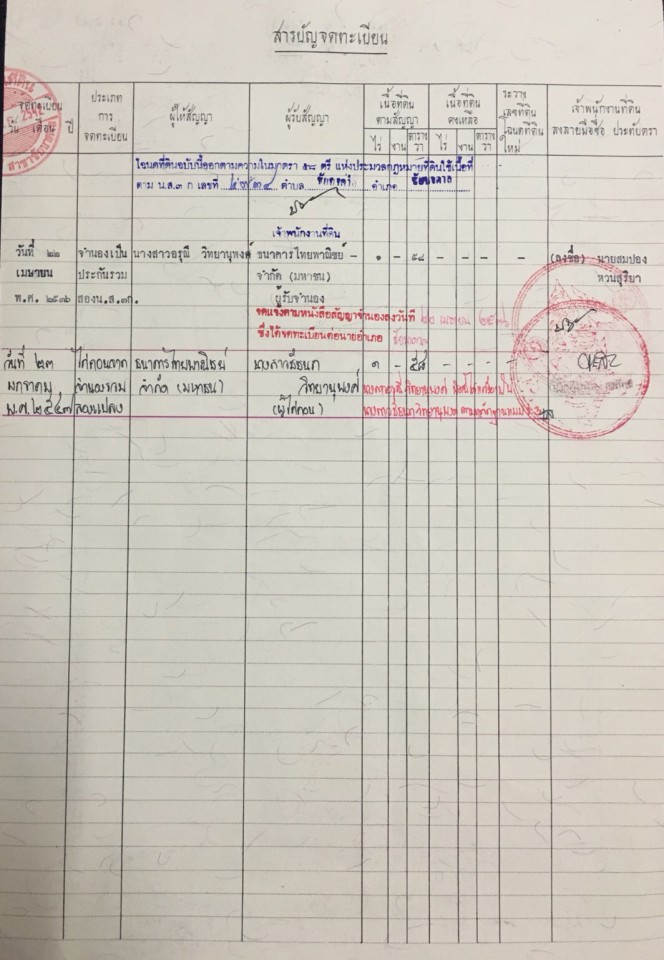 สารบัญจดทะเบียน
จดทะเบียน
วัน เดือน ปี
ประเภท
การ
จดทะเบียน
ผู้ให้สัญญา
ผู้รับสัญญา
เนื้อที่ดิน
ตามสัญญา
ไร่ งาน ตาราง
วา
เนื้อที่ดิน
คงเหลือ
ไร่ งาน ตาราง
วา
ระวาง
เลขที่ดิน
โฉนดที่ดิน
ใหม่
เจ้าพนักงานที่ดิน
ลงลายมือชื่อ ประทับตรา
โฉนดที่ดินฉบับนี้ออกตามความในมาตรา ๕๘ ตรี แห่งประมวลกฎหมายที่ดินใช้เนื้อที่
ตาม น.ส.๓ ก เลขที่ ตำบล อำเภอ
เจ้าพนักงานที่ดิน
วันที่ ๒๒ จำนองเป็น นางสาวอรุณี วิทยานุพงศ์ ธนาคารไทยพาณิชย์ - ๑ - ๕๘ - - - - (ลงชื่อ) นายสมปอง
เมษายน ประกันรวม จำกัด (มหาชน) หวนสุริยา
พ.ศ. ๒๕๓๖ สองน.ส.๓ก. ผู้รับจำนอง
จดแจ้งตามหนังสือสัญญาจำนองลงวันที่ ๒๒ เมษายน ๒๕๓๖
ซึ่งได้จดทะเบียนต่อนายอำเภอ
วันที่ ๒๓ ไถ่ถอนจาก ธนาคารไทยพาณิชย์ ๑ - ๕๘ - - - -
มกราคม จำนองรวม จำกัด (มหาชน) วิทยานุพงศ์
พ.ศ.๒๕๔๗ สองแปลง (ผู้ไถ่ถอน)